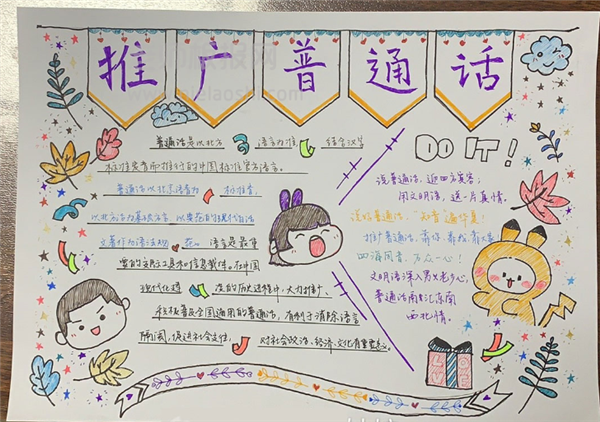 推广普通话
普通话是以北方 语言为准 结合汉语
标准发音而推行的中国标准官方语言。
普通话以北京语音为 标准音,
以北方话为基础方言,以典范的现代白话
文著作为语法规 范。 语言是最重
要的交际工具和信息载体。在中国
现代化建 设的历史进程中,大力推广、
积极普及全国通用的普通话,有利于消除语言
隔阂,促进社会交往, 对社会政治、经济、文化有重要意义。
DO IT!
说普通话,迎四方宾客;
用文明语,送一片真情。
说好普通话,“知音”遍华夏!
推广普通话,齐你、齐我、齐大家
四海同音,万众一心!
文明语深入男女老少心,
普通话南北汇东南
西北情。